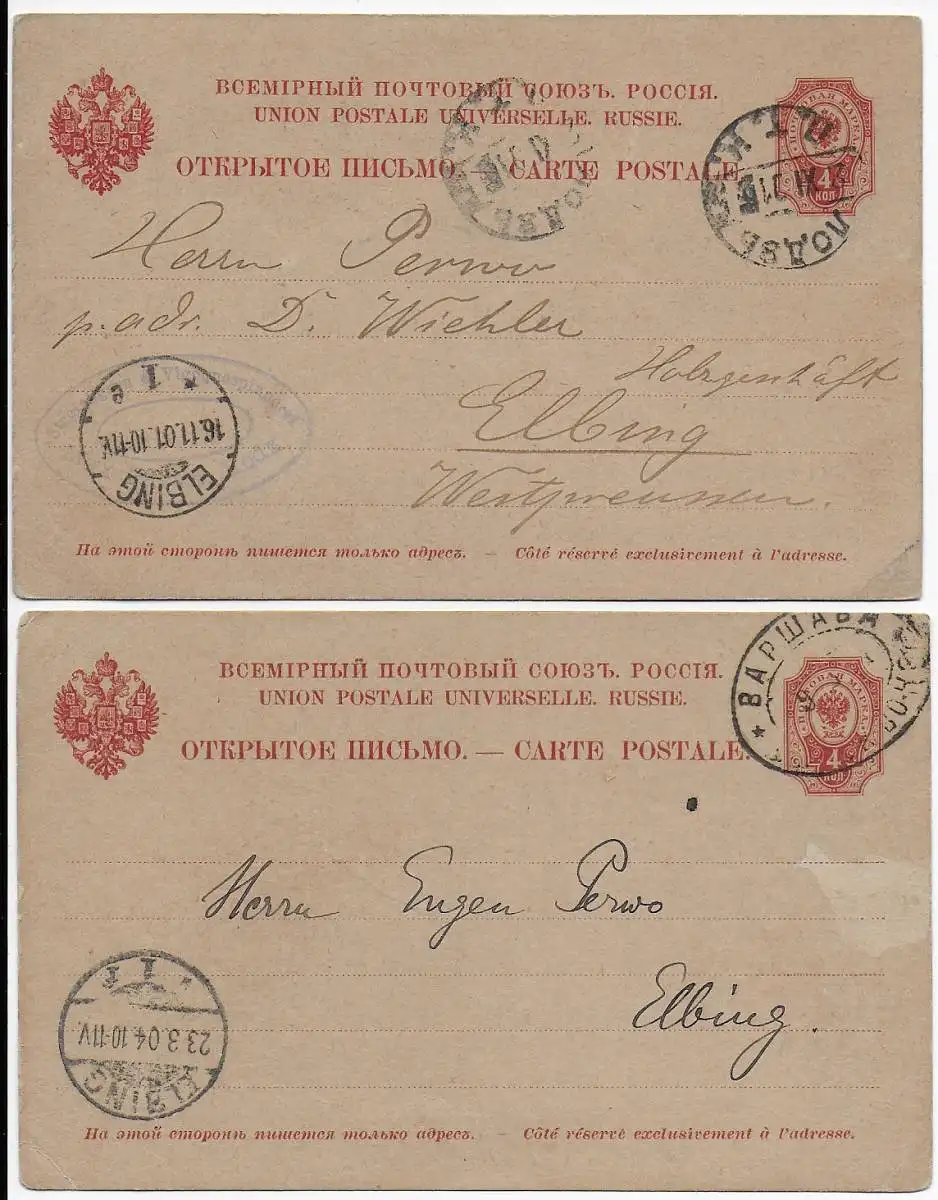 ВСЕМІРНЫЙ ПОЧТОВЫЙ СОЮЗЪ. РОССІЯ.
UNION POSTALE UNIVERSELLE. RUSSIE.
ОТКРЫТОЕ ПИСЬМО. — CARTE POSTALE.
ПОЧТОВАЯ МАРКА
4
КОП
ЛОДЗЬ
ЛОДЗЬ
Herrn Perwo
p. adr. D. Wiehler
Holzgeschäft
Elbing
Westpreussen.
* 1 e
16.11.01.10-11V.
ELBING
На этой сторонѣ пишется только адресъ. — Côté réservé exclusivement à l'adresse.
ВСЕМІРНЫЙ ПОЧТОВЫЙ СОЮЗЪ. РОССІЯ.
UNION POSTALE UNIVERSELLE. RUSSIE.
ОТКРЫТОЕ ПИСЬМО. — CARTE POSTALE.
ПОЧТОВАЯ МАРКА
4
КОП
* ВАРШАВА
Herrn Eugen Perwo
Elbing.
23.3.04.10-11V.
ELBING
На этой сторонѣ пишется только адресъ. — Côté réservé exclusivement à l'adresse.